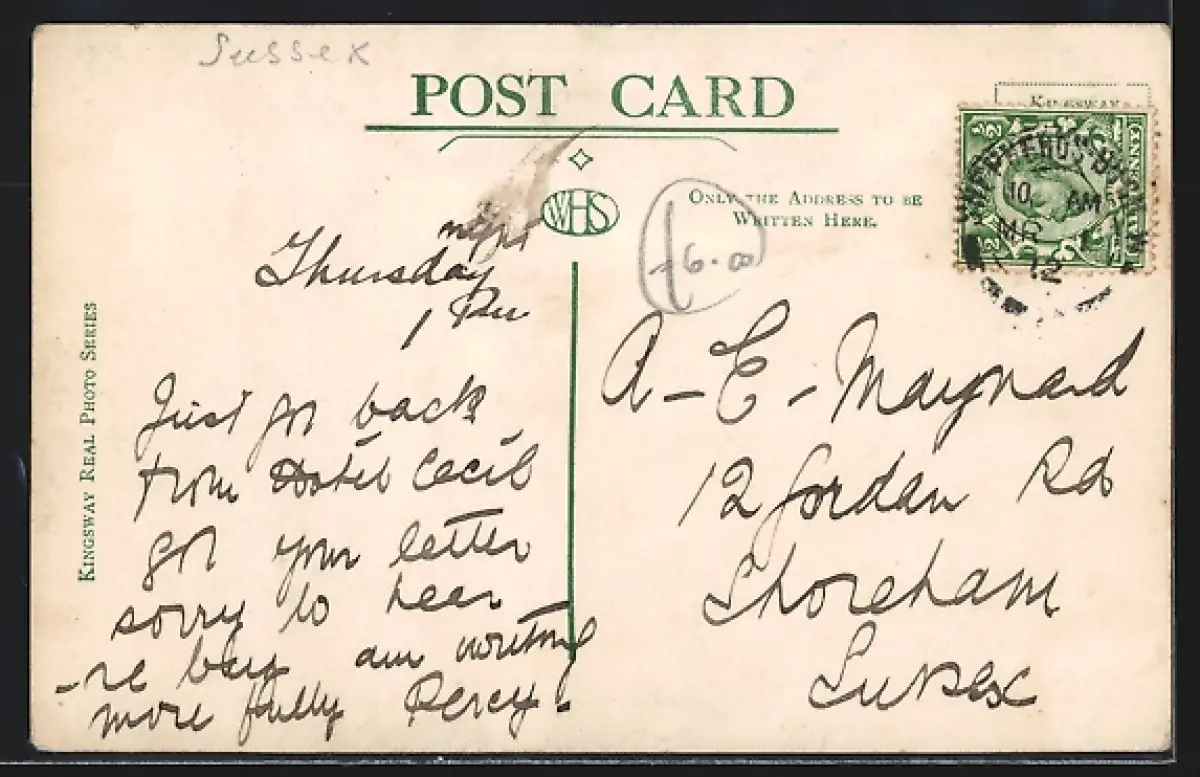 Sussex
POST CARD
WHS
KINGSWAY
ONLY THE ADDRESS TO BE
WRITTEN HERE.
6.00
SHEPHERDS BUSH
10 AM
MR
12
½ ½
KINGSWAY REAL PHOTO SERIES
night
Thursday
1
Just got back
from Hotel Cecil
got your letter
sorry to hear
-re am writing
more fully Percy.
A - E - Maynard
12 Jordan Rd
Shoreham
Sussex